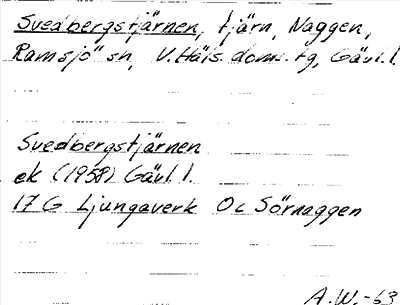 Svedbergstjärnen, tjärn, Naggen,
Ramsjö sn, V.Häls. doms. tg, Gävl.l.
Svedbergstjärnen
ek (1958) Gävl l.
17 G Ljungaverk Oc Sörnaggen
A.W.-63